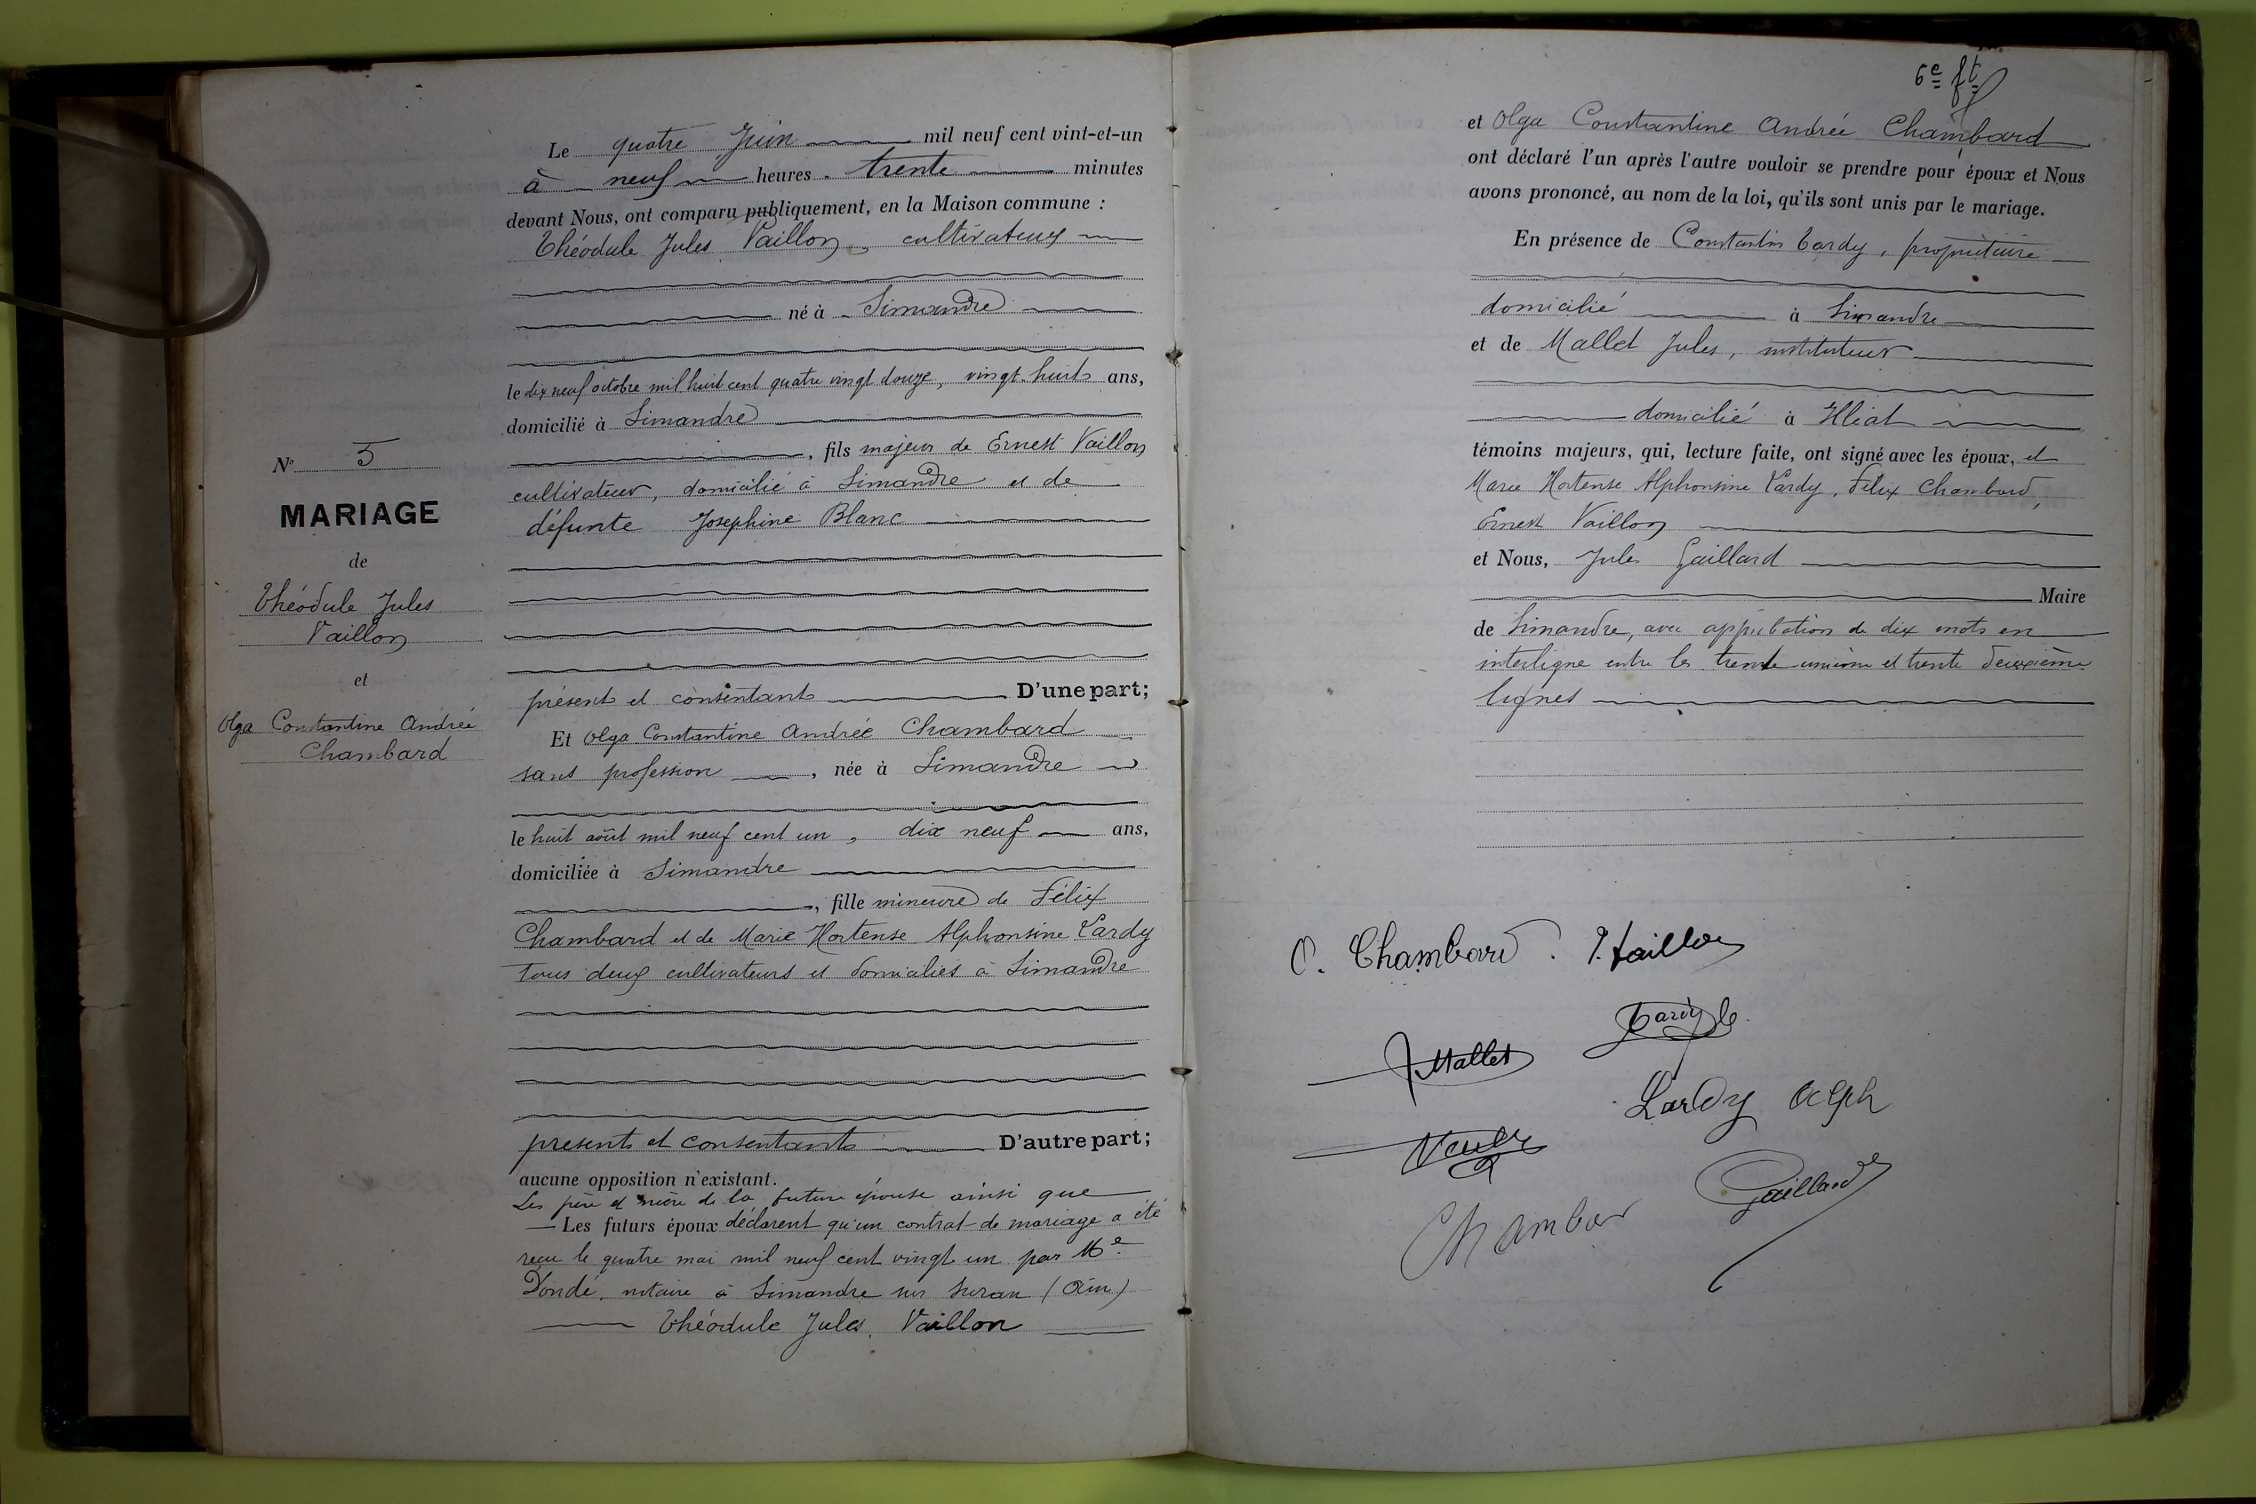 Le quatre Juin mil neuf cent vint-et-un
à neuf heures trente minutes
devant Nous, ont comparu publiquement, en la Maison commune :
Théodule Jules Vaillon, cultivateur
né à Simandre
le dix neuf octobre mil huit cent quatre vingt douze, vingt-huit ans,
domicilié à Simandre
, fils majeur de Ernest Vaillon
cultivateur, domicilié à Simandre et de
défunte Josephine Blanc
présent et consentant D'une part;
Et Olga Constantine Andrée Chambard
sans profession, née à Simandre
le huit août mil neuf cent un, dix neuf ans,
domiciliée à Simandre
, fille mineure de Félix
Chambard et de Marie Hortense Alphonsine Lardy
tous deux cultivateurs et domiciliés à Simandre
présents et consentants D'autre part;
aucune opposition n'existant.
Les père et mère de la future épouse ainsi que
Les futurs époux déclarent qu'un contrat de mariage a été
reçu le quatre mai mil neuf cent vingt un par Me
notaire à Simandre sur Suran (Ain)
Théodule Jules Vaillon
No 5
MARIAGE
de
Théodule Jules
Vaillon
et
Olga Constantine Andrée
Chambard
6e ft
et Olga Constantine Andrée Chambard
ont déclaré l'un après l'autre vouloir se prendre pour époux et Nous
avons prononcé, au nom de la loi, qu'ils sont unis par le mariage.
En présence de Constantin Tardy, propriétaire
domicilié à Simandre
et de Mallet Jules, instituteur
domicilié à Illiat
témoins majeurs, qui, lecture faite, ont signé avec les époux, et
Marie Hortense Alphonsine Lardy, Félix Chambard,
Ernest Vaillon
et Nous, Jules Gaillard
Maire
de Simandre, avec approbation de dix mots en
interligne entre les trente unième et trente deuxième
lignes
O. Chambard. J. Vaillon
J. Mallet Tardy C.
Lardy Alph
Chambar Gaillard